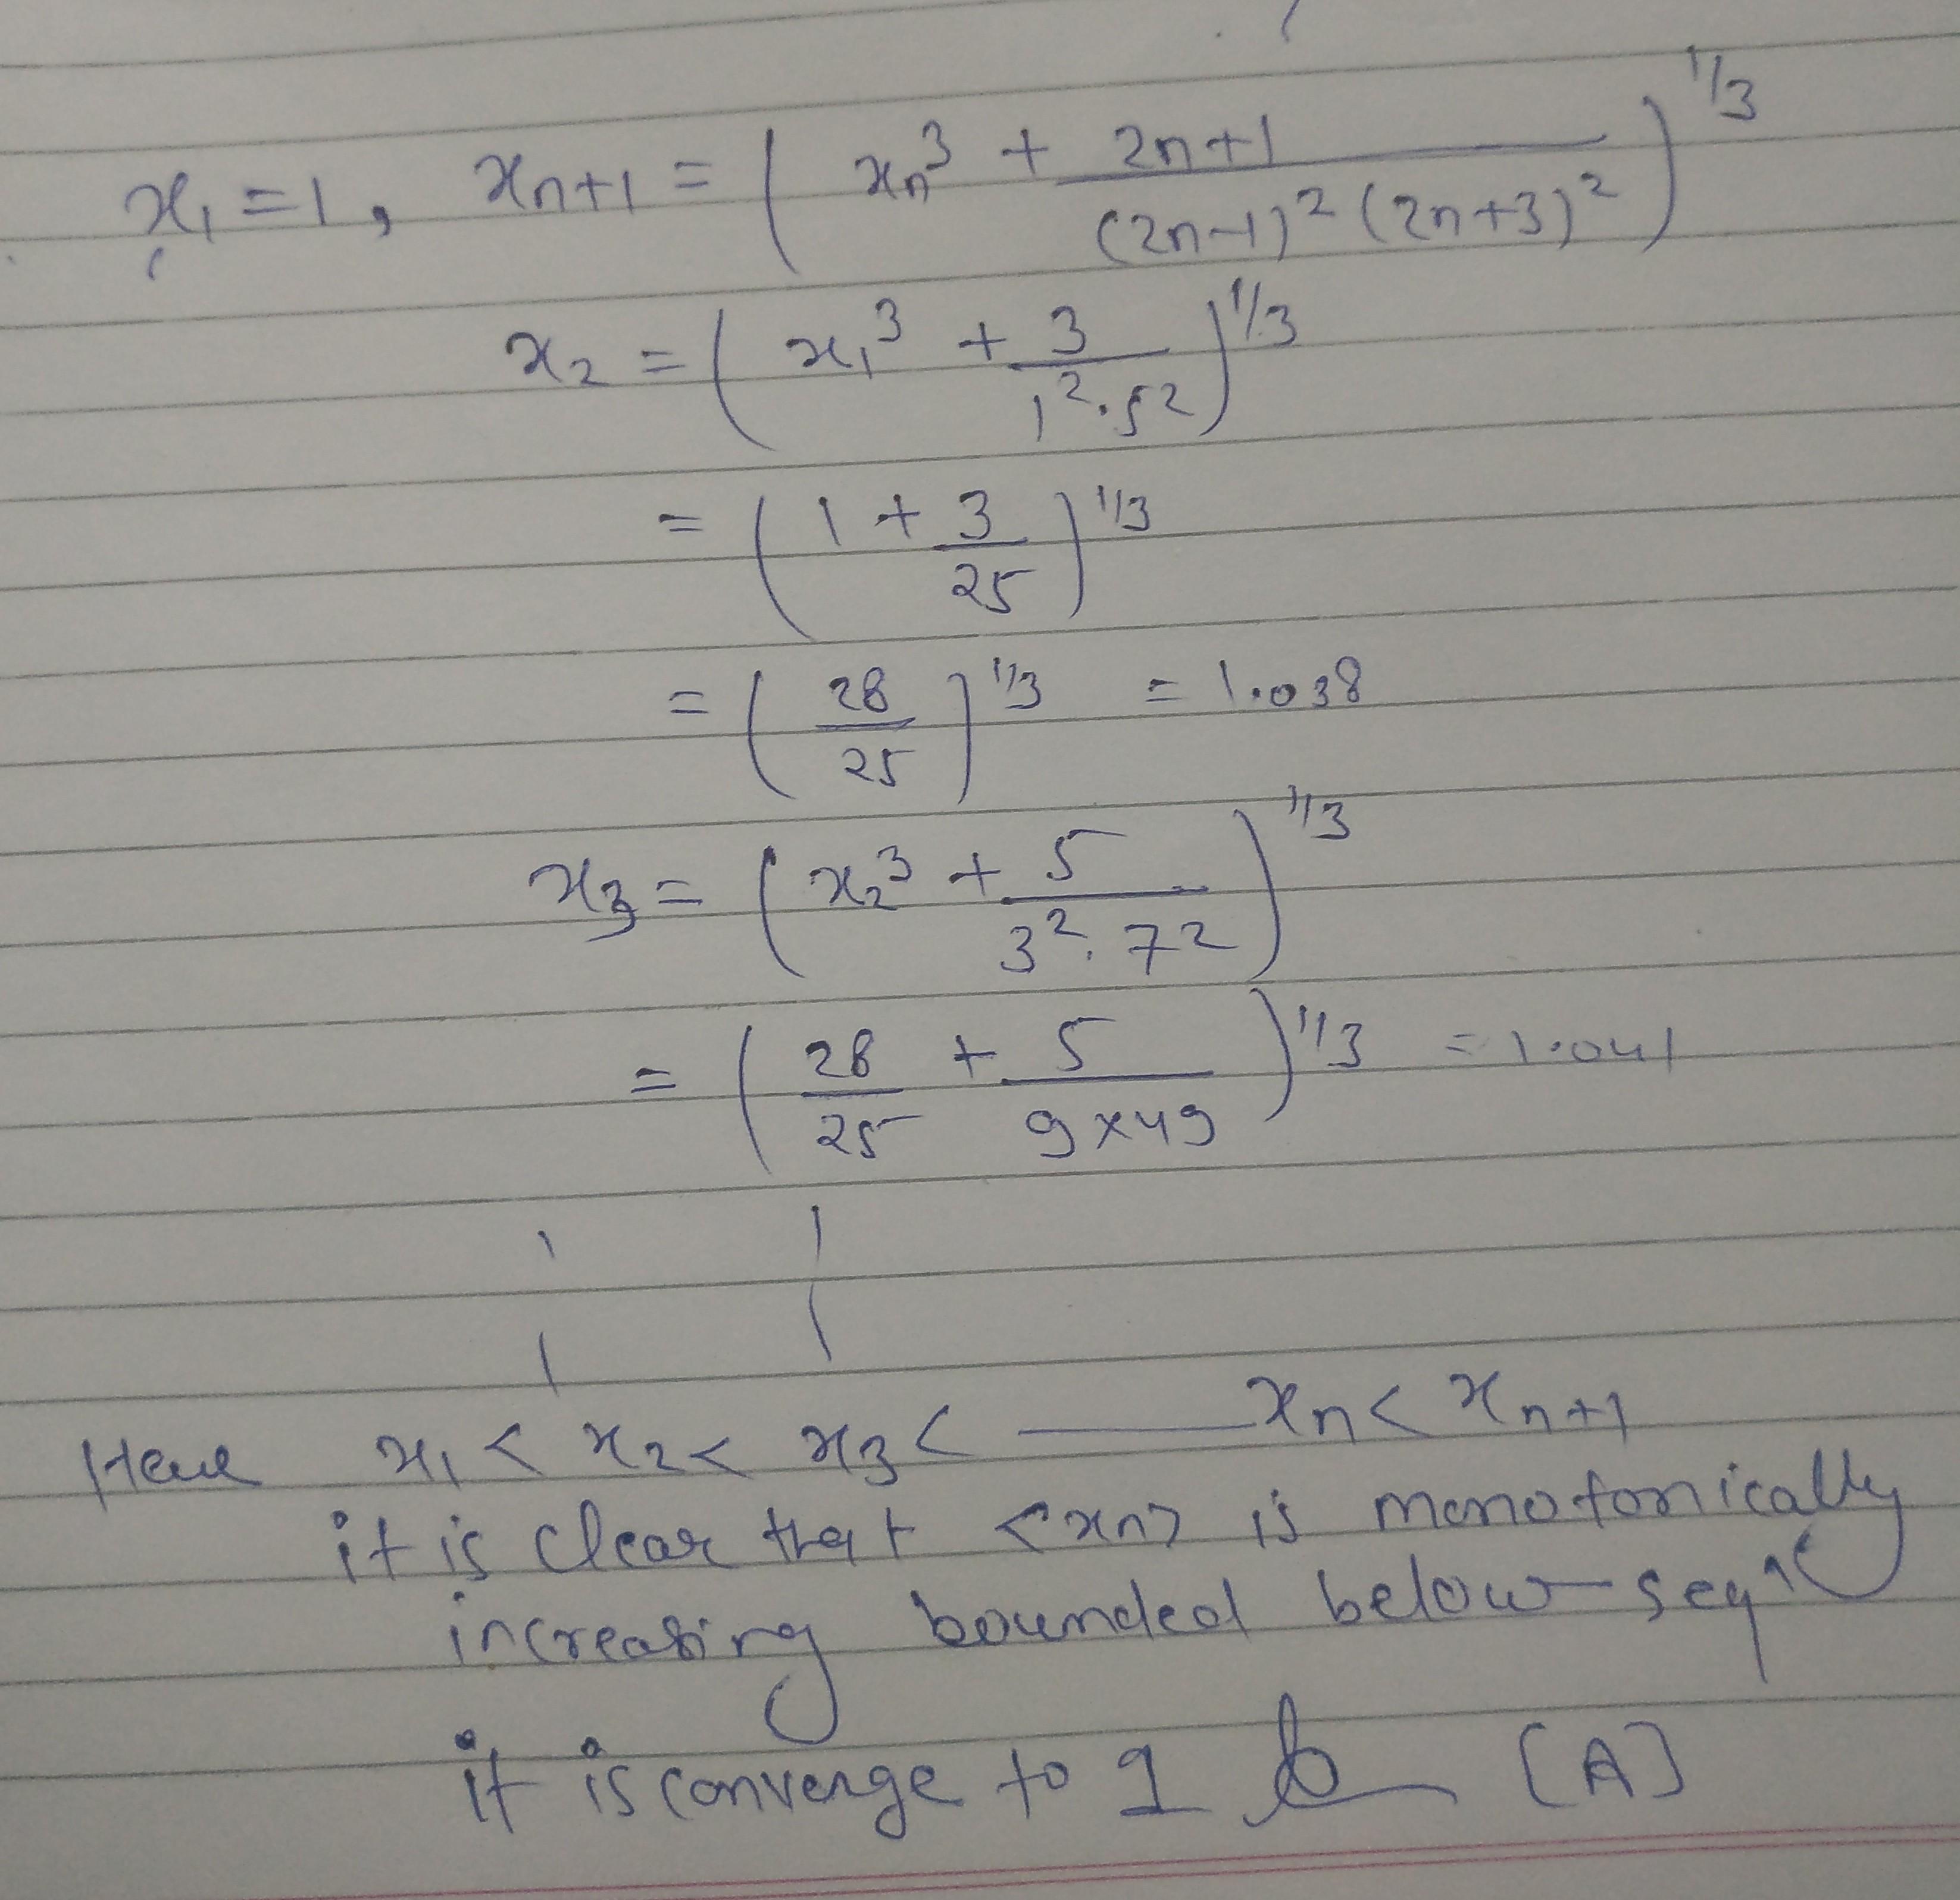 x₁ = 1, xₙ₊₁ = ( xₙ³ + (2n+1)/((2n-1)² (2n+3)²) )^1/3
x₂ = ( x₁³ + 3/(1²·5²) )^1/3
= ( 1 + 3/25 )^1/3
= ( 28/25 )^1/3 = 1.038
x₃ = ( x₂³ + 5/(3²·7²) )^1/3
= ( 28/25 + 5/(9×49) )^1/3 = 1.041
Here x₁ < x₂ < x₃ < —— xₙ < xₙ₊₁
it is clear that <xₙ> is monotonically
increasing bounded below seqⁿ
it is converge to 1 [A]